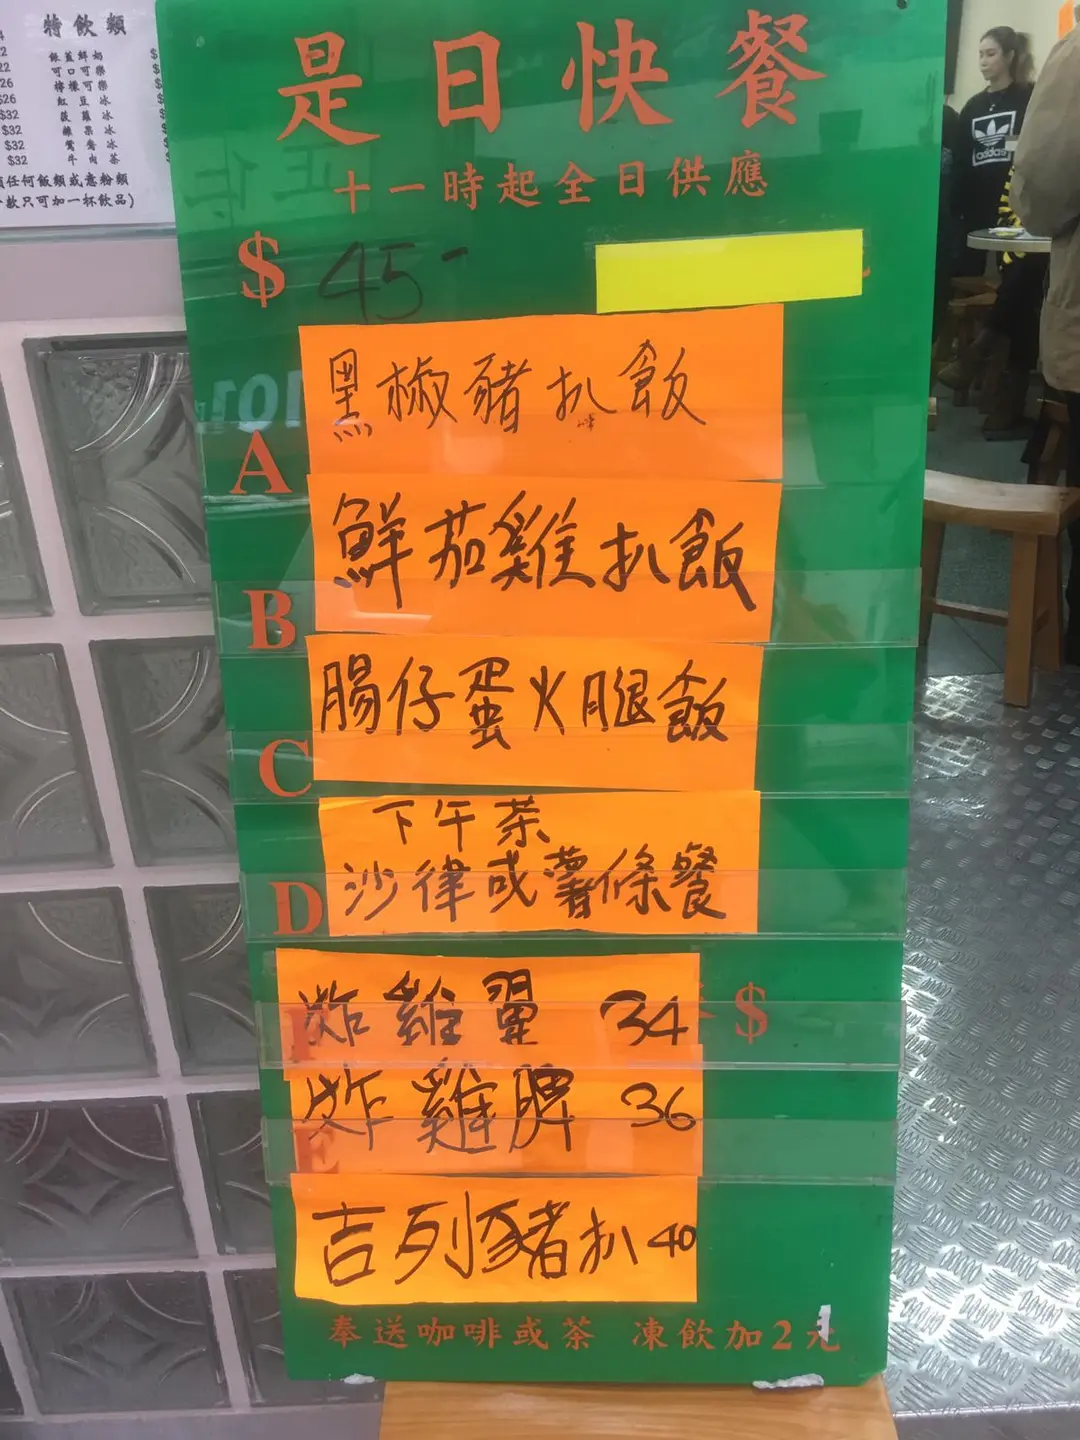 特飲類
銀蓋鮮奶
可口可樂
檸檬可樂
紅豆冰
菠蘿冰
雜果冰
鴛鴦冰
牛肉茶
22
26
$26
$32
$32
$32
$32
任何飯類或意粉類
款只可加一杯飲品)
是日快餐
十一時起全日供應
$ 45-
A 黑椒豬扒飯
B 鮮茄雞扒飯
C 腸仔蛋火腿飯
下午茶
D 沙律或薯條餐
炸雞翼 34 $
炸雞脾 36
E
吉列豬扒 40
奉送咖啡或茶 凍飲加2元
adidas
101